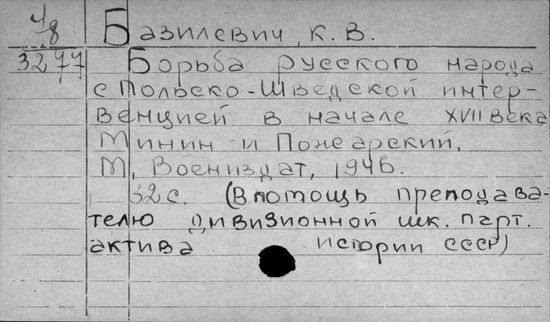 4/8 Базилевич, К. В.
3277 Борьба русского народа
с Польско-Шведской интер-
венцией в начале XVII века
Минин и Пожарский.
М, Воениздат, 1946.
32 с. (В помощь преподава-
телю дивизионной шк. парт.
актива истории СССР)